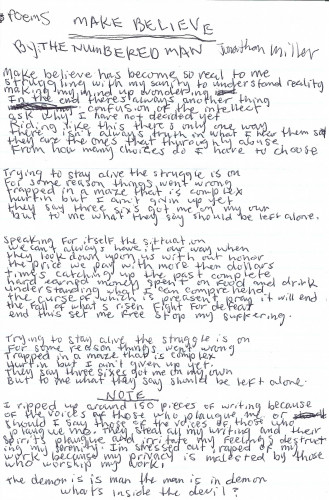 Poems
MAKE BELIEVE
BY THE NUMBERED MAN Jonathan Miller
Make believe has become so real to me
struggling with my sanity to understand reality
making my mind up wondering
In the end theres always another thing
confusion of the intellect
ask why I have not decided yet
Riding like this there's only one way
there isn't always truth in what I hear them say
they are the ones that thuroughly abuse
From how many choices do I have to choose
Trying to stay alive the struggle is on
For some reason things went wrong
trapped in a maze that is complex
hurtin but I ain't givin up yet
they say three sixs got me on my own
but to me what they say should be left alone.
Speaking for itself the situation
we can't always have it our way when
they look down upon us with out honor
the price we pay with more then dollars
times catching up the past complete
hard earned money spent on food and drink
understanding what I can comprehend
the curse of which is preasent pray it will end
the fall of what's risen fight for defeat
end this set me free stop my suffering.
Trying to stay alive the struggle is on
For some reason things went wrong
Trapped in a maze that is complex
Hurtin but I ain't given up yet
They say three sixes got me on my own
But to me what they say should be left alone.
NOTE
I ripped up around 150 pieces of writing because
of the voices of those who plaugue me or
should I say those of the voices of those who
plaugue me. They steal my writing and their
spirits plaugue and irritate my feelings destruct
ing my being. I'm stressed out & raped of my
work because my privacy is molected by those
who worship my work.
The demon is is man the man is in demon
whats inside the devil?